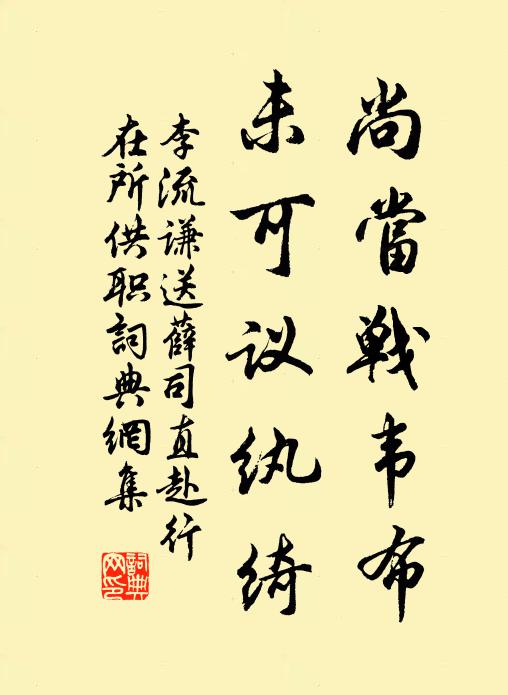 尚當戰韦布
未可议纨绮
李流谦送薛司直赴行
在所供职詞典網集
詞典
网印